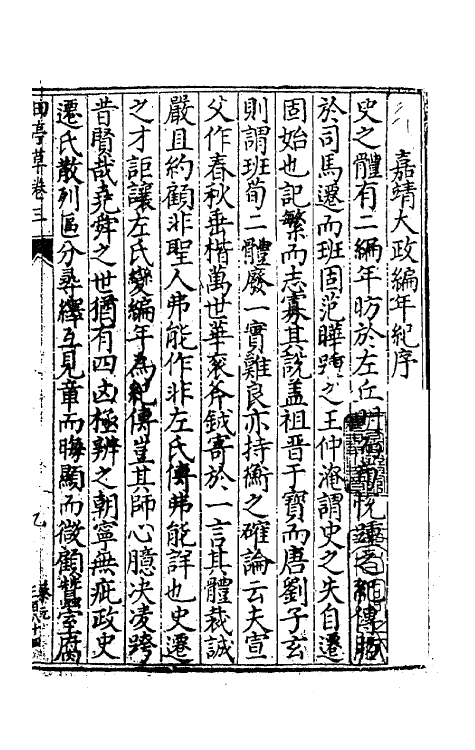 嘉靖大政編年紀序
史之體有二編年昉於左丘明荀悅踵之紀傳昉
於司馬遷而班固范曄踵之王仲淹謂史之失自遷
固始也記繁而志寡其說盖祖晉于寶而唐劉子玄
則謂班荀二體廢一實難良亦持衡之確論云夫宣
父作春秋垂楷萬世華衮斧鉞寄於一言其體裁誠
嚴且約顧非聖人弗能作非左氏傳弗能詳也史遷
之才詎讓左氏變編年為紀傳豈其師心臆决凌跨
昔賢哉堯舜之世猶有四凶極辨之朝寧無疵政史
遷氏散列區分尋繹互見童而晦顯而微顧
腐
田亭草卷三